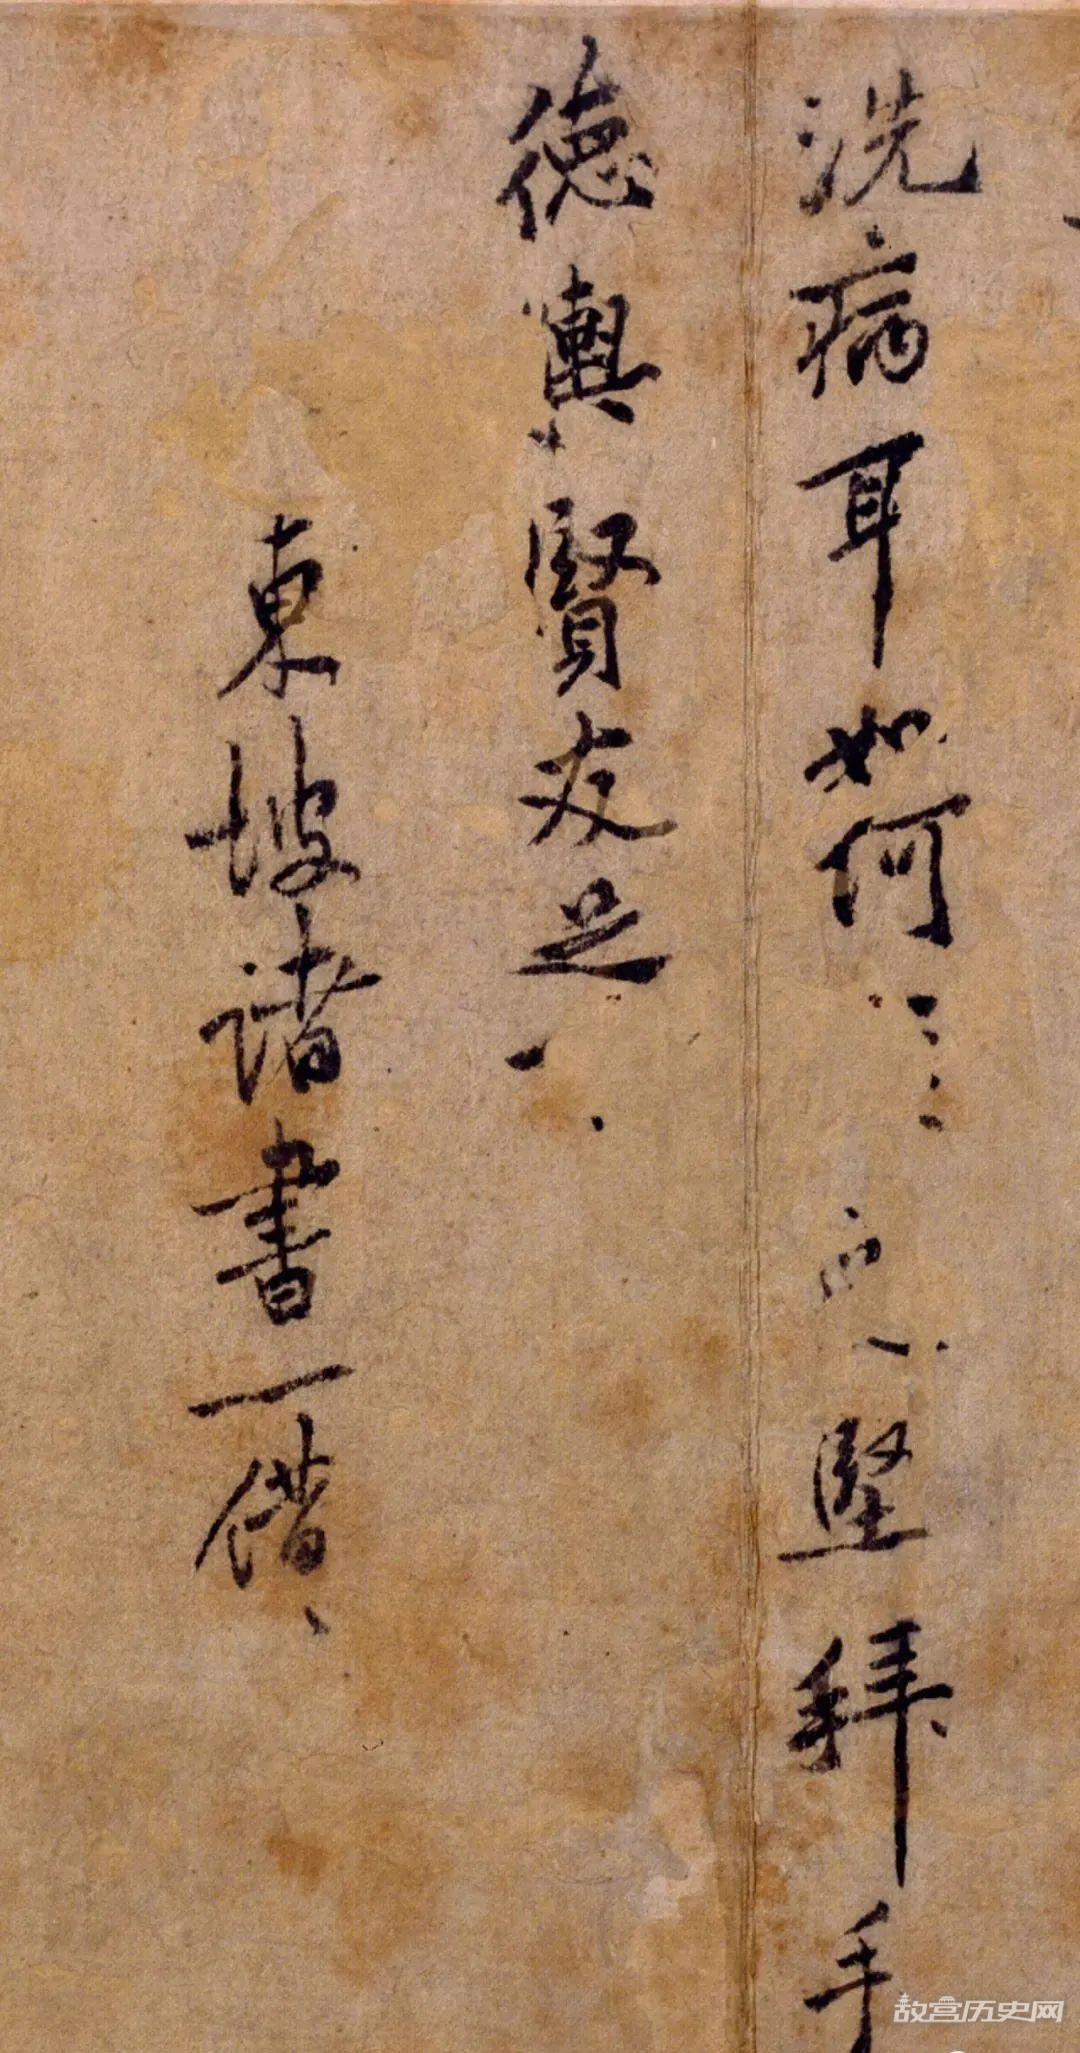 洗病耳如何 堅拜手
德輿賢友足下
東坡諸書一借
故宫历史网